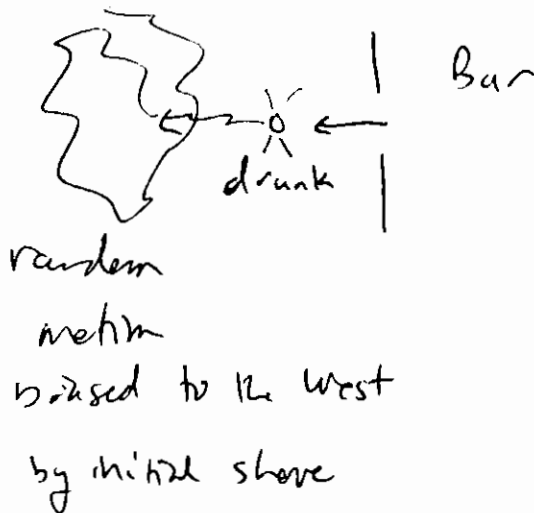 Bar
drunk
random
motion
biased to the West
by initial shove